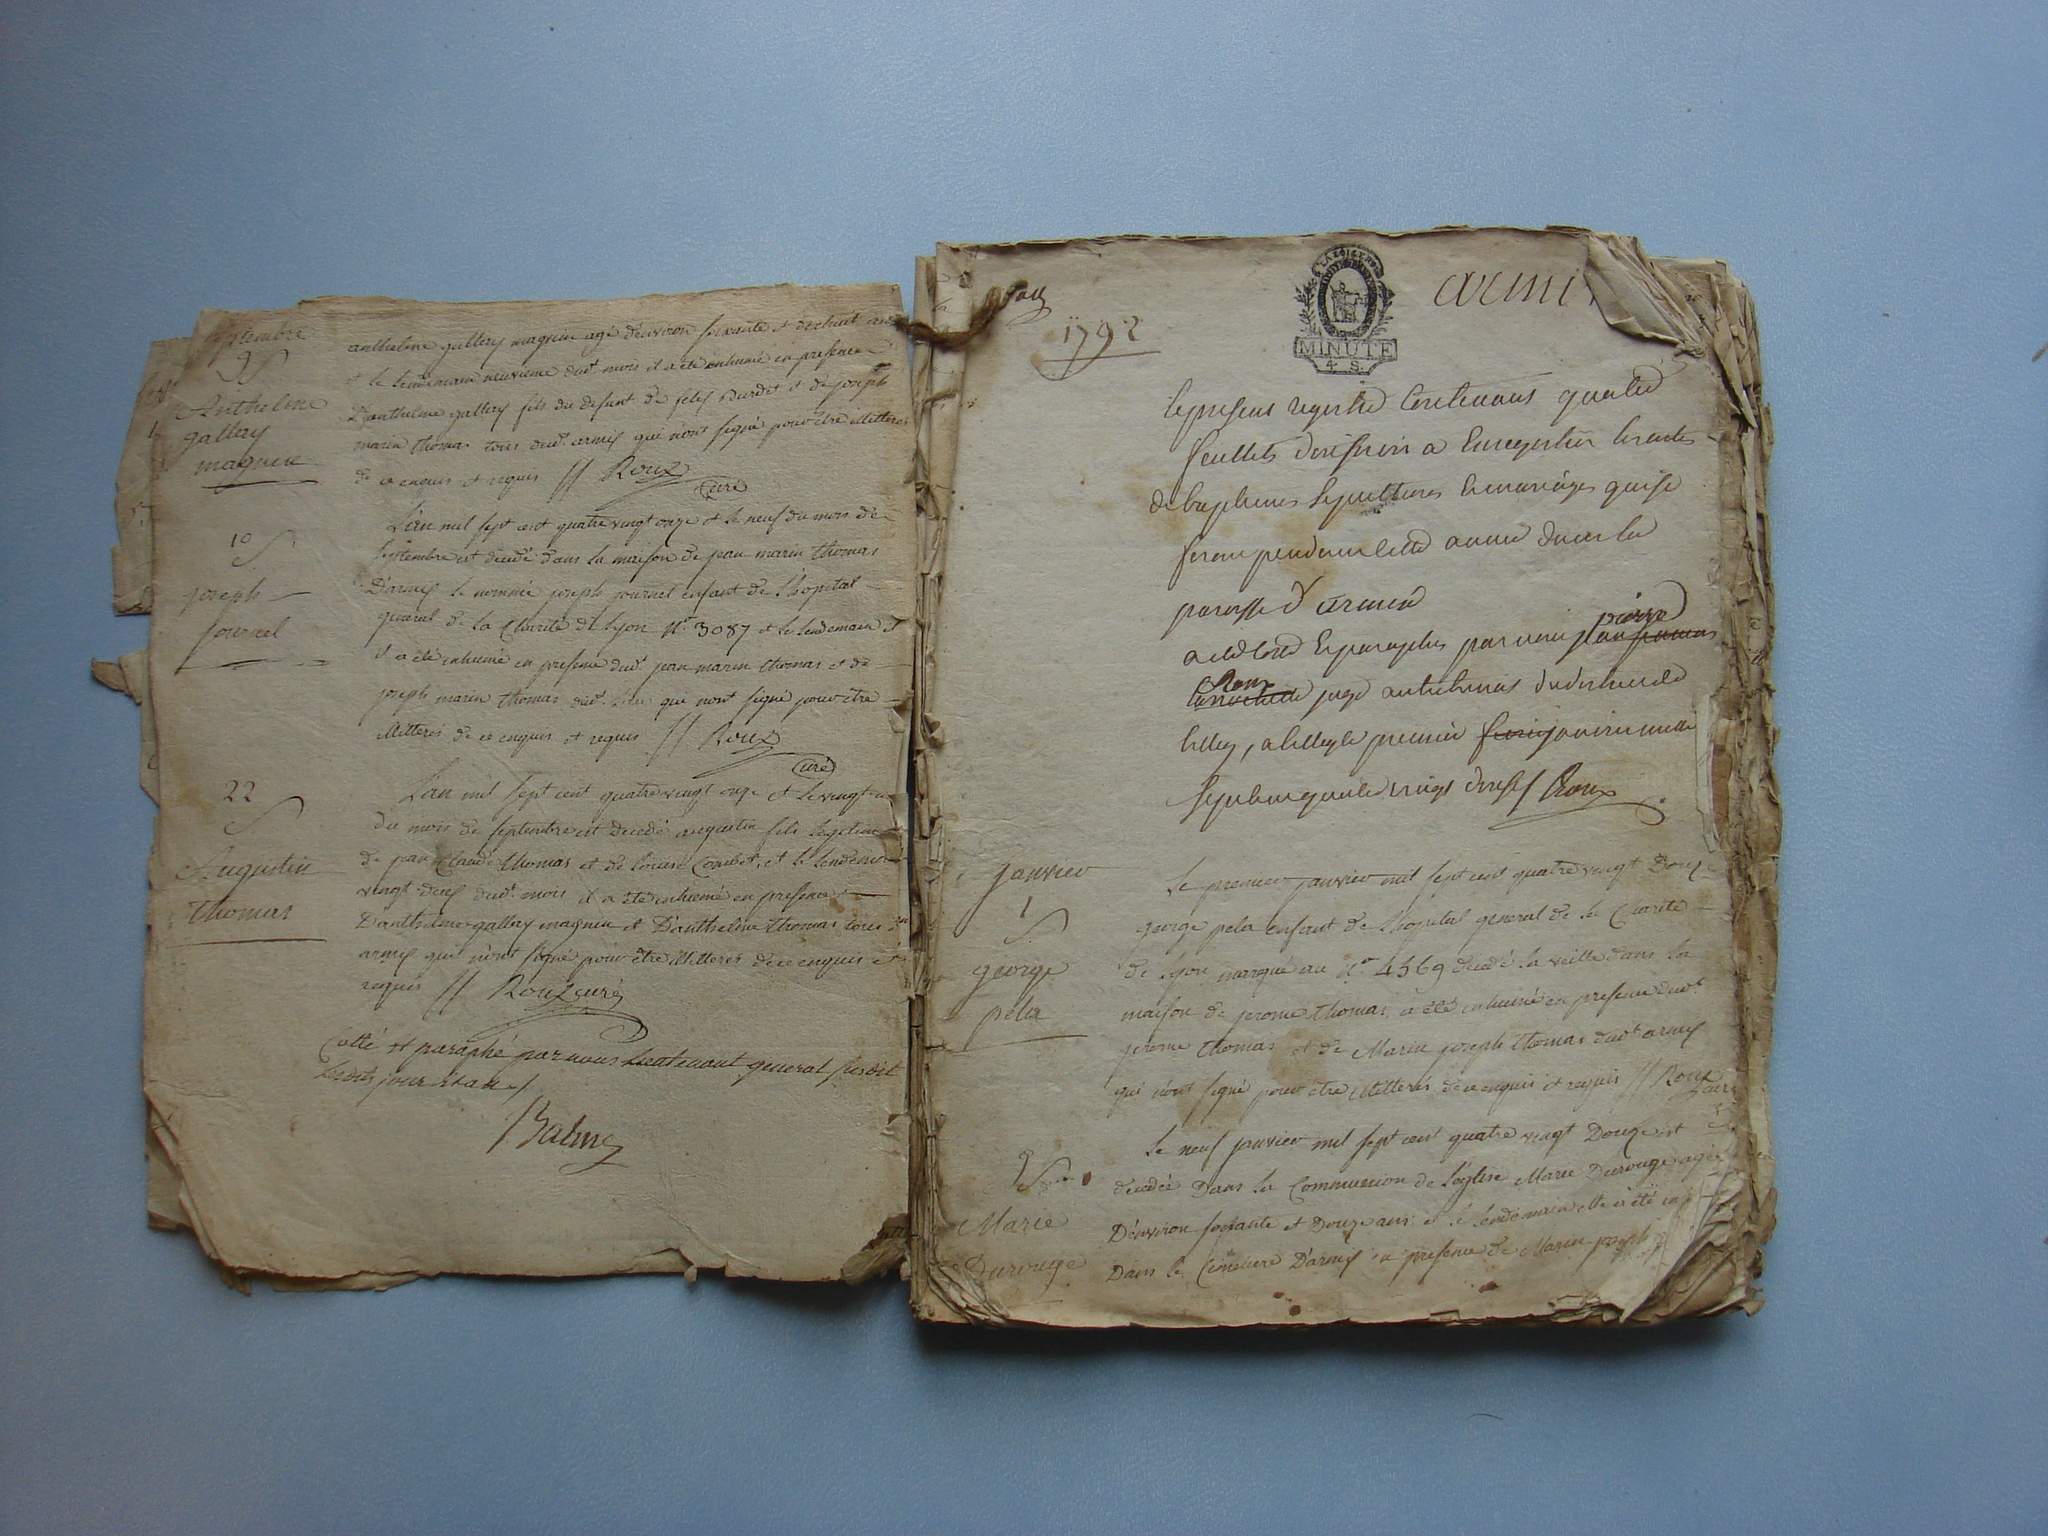 Septembre
9 S
Anthelme
gallay
magnin
anthelme gallay magnin agé d'environ soixante et dixhuit ans
et le lendemain neuvieme dud.t mois il a été inhumé en presence
D'anthelme gallay fils du defunt de felix Burdet et de joseph
marin thomas tous dud.t armix qui n'ont signé pour être illitterés
de ce enquis et requis // Roux
Curé
10
S
joseph
journel
L'an mil sept cent quatre vingt onze et le neuf du mois de
septembre est decedé dans la maison de jean marin thomas
D'armix le nommé joseph journel enfant de l'hopital
general de la Charité de lyon N.o 3087 et le lendemain
il a été inhumé en presence dud.t jean marin thomas et de
joseph marin thomas dud.t lieu qui n'ont signé pour être
illitterés de ce enquis et requis // Roux
Curé
22
S
Augustin
Thomas
L'an mil sept cent quatre vingt onze et le vingt un
du mois de septembre est decedé augustin fils legitime
de jean Claude thomas et de louise Combet, et le lendemain
vingt deux dud.t mois il a été inhumé en presence
D'anthelme gallay magnin et D'anthelme thomas tous
armix qui n'ont signé pour être illitterés de ce enquis et
requis // Roux curé
Cotté et paraphé par nous Lieutenant general susdit
Lesdits jour et an
Balme
1792
MINUTE
4 S.
armi
le present registre Contenant quatre
feuillets destiné a Enregistrer les actes
de baptemes sepultures et mariages qui se
feront pendant cette année dans la
paroisse d'armix
a été Cotté et paraphé par nous pierre
Roux juge au tribunal du district de
belley, a belley le premier janvier mille
sept cent quatre vingt douze // Roux
janvier
1
S
george
pela
Le premier janvier mil sept cent quatre vingt Douze
george pela enfant de l'hopital general de la Charité
de lyon marqué au N.o 4569 decedé la veille dans la
maison de jerome thomas, a été inhumé en presence dud.t
jerome thomas et de Marin joseph thomas dud.t armix
qui n'ont signé pour etre illitterés de ce enquis et requis // Roux
curé
9
S
Marie
Durouge
Le neuf janvier mil sept cent quatre vingt Douze est
decedée Dans la Communion de l'église Marie Durouge agée
D'environ soixante et Douze ans et le lendemain elle a été
Dans le Cimetiere D'armix en presence de Marin joseph